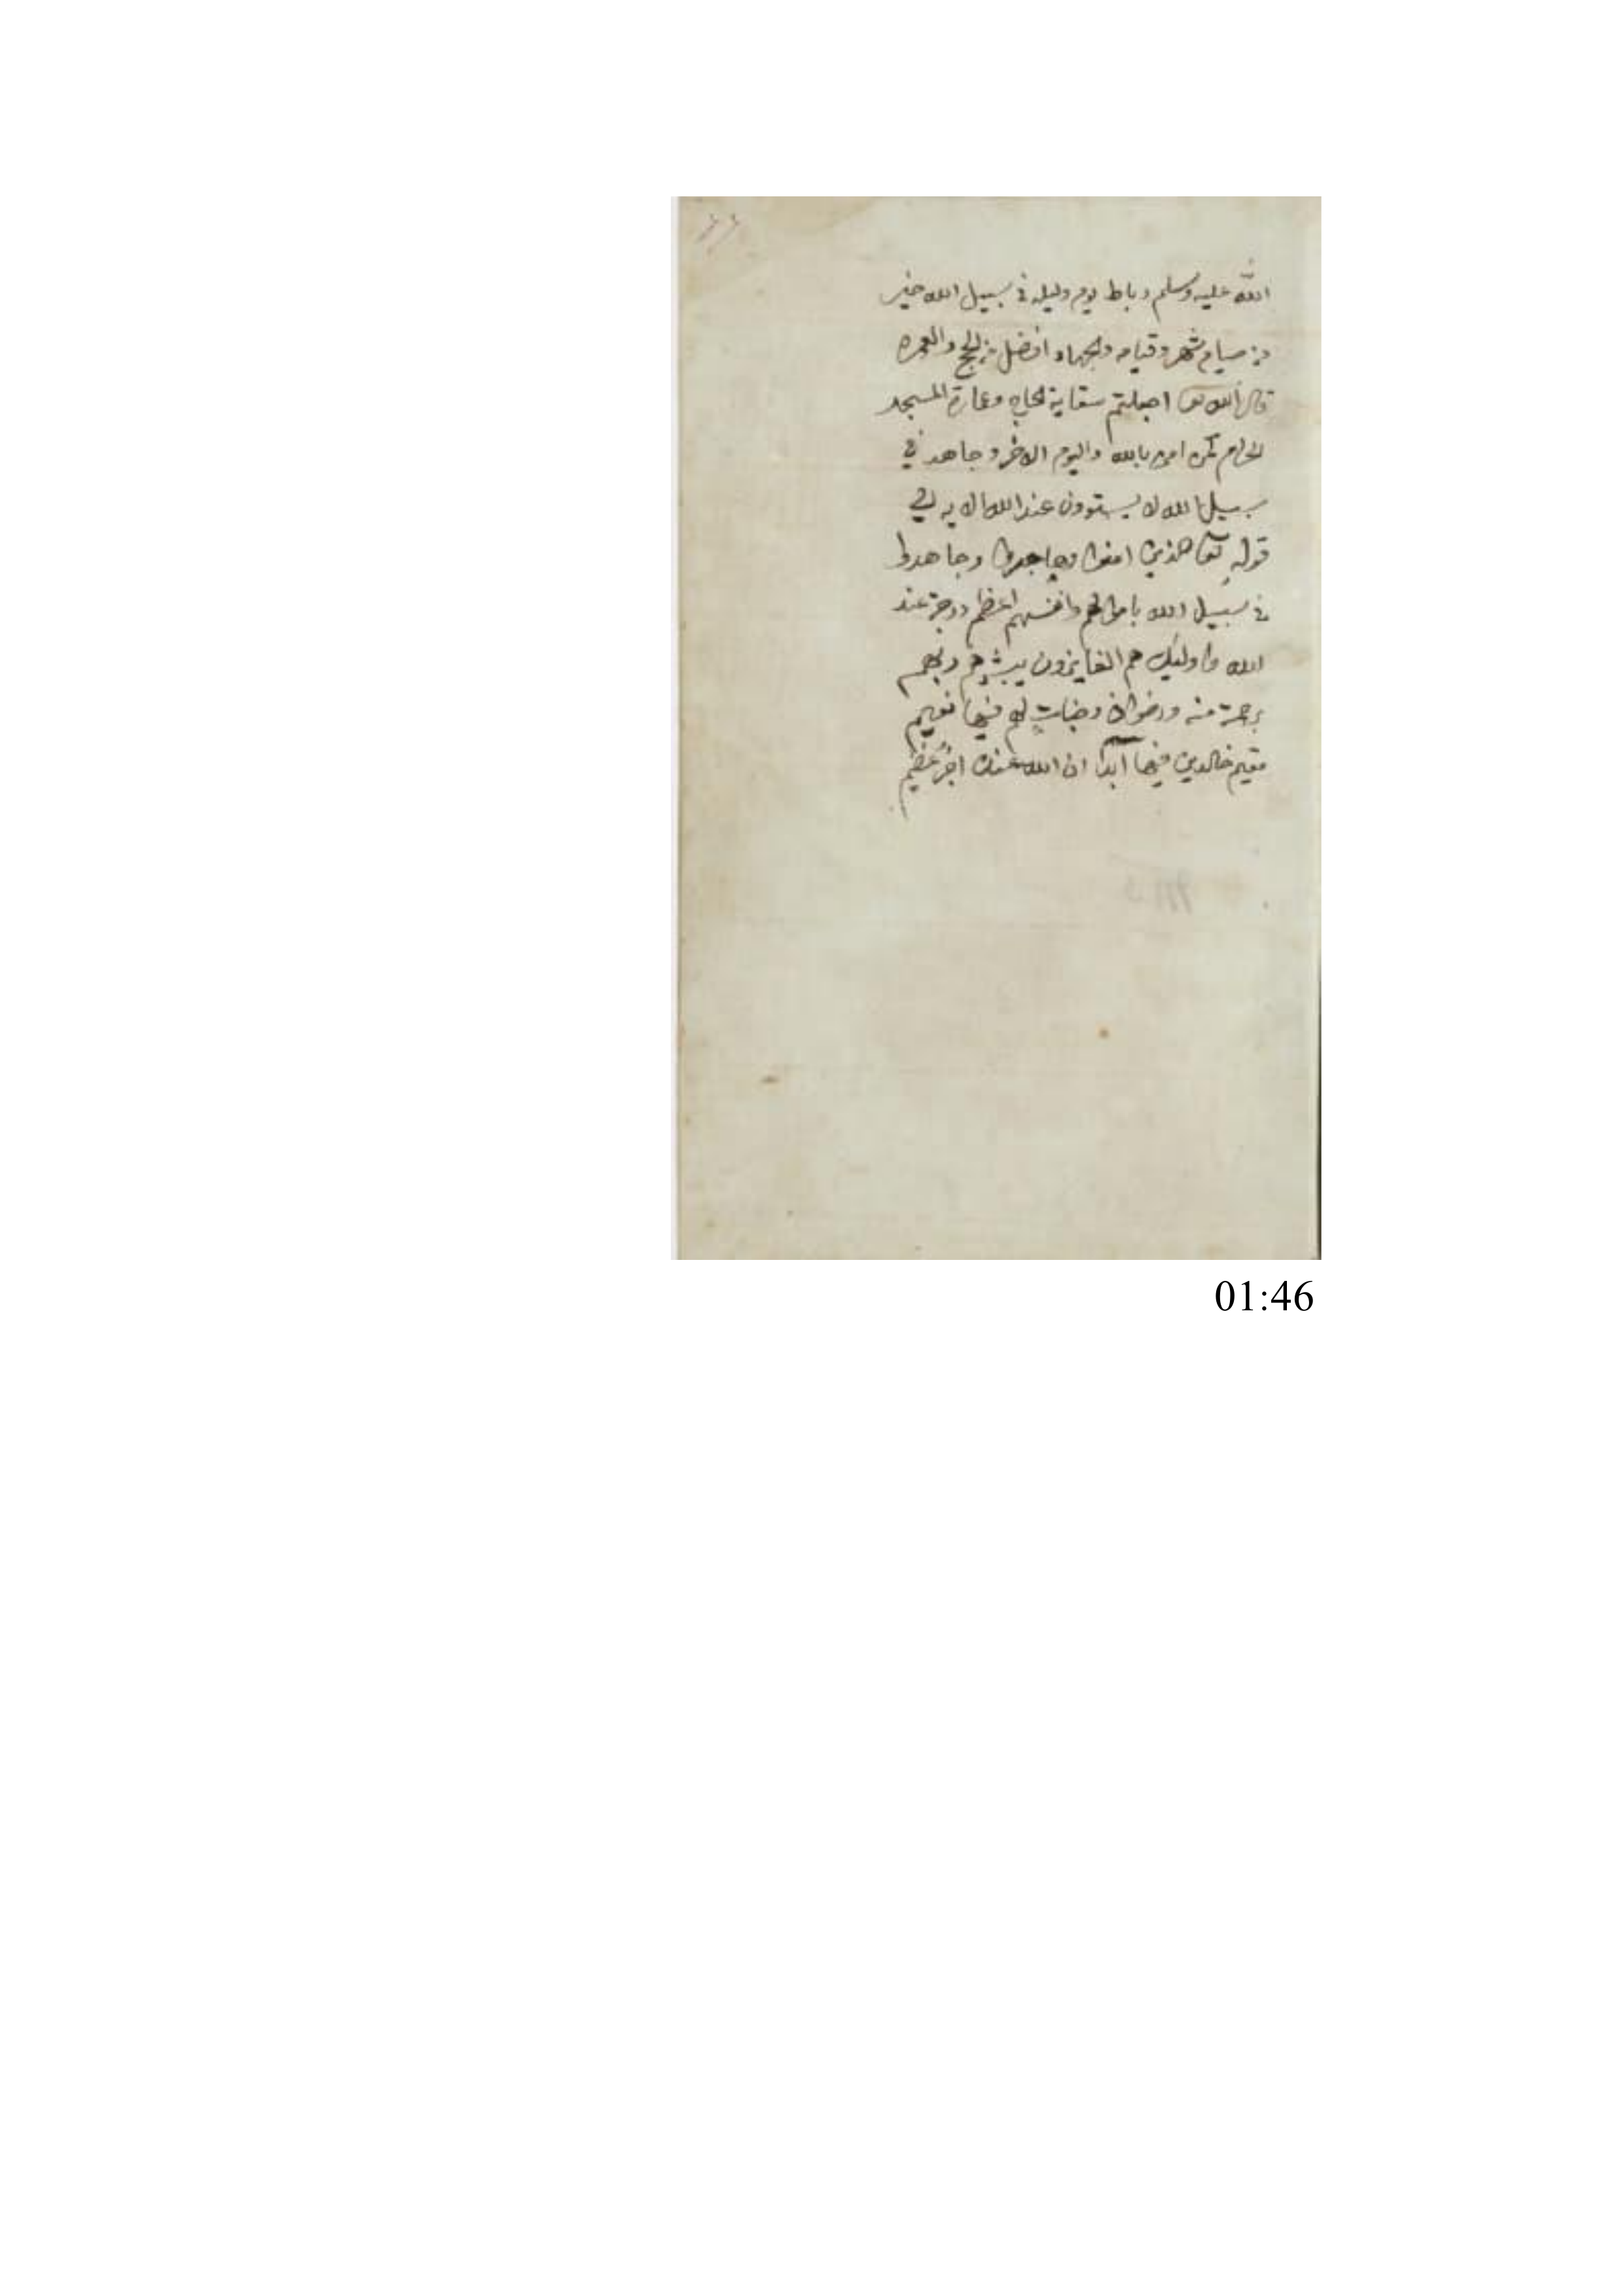 ٤٤
الله عليه وسلم رباط يوم وليله في سبيل الله خير
من صيام شهر وقيامه والجهاد افضل من الحج والعمره
قال الله تعا اجعلتم سقاية الحاج وعمارة المسجد
الحرام كمن امن بالله واليوم الاخر وجاهد في
سبيل الله لا يستوون عند الله الايه الي
قوله تعا الذين امنوا وهاجروا وجاهدوا
في سبيل الله باموالهم وانفسهم اعظم درجة عند
الله واوليك هم الفايزون يبشرهم ربهم
برحمة منه ورضوان وجناتٍ لهم فيها نعيم
مقيم خالدين فيها ابدا ان الله عنده اجرٌ عظيم
01:46